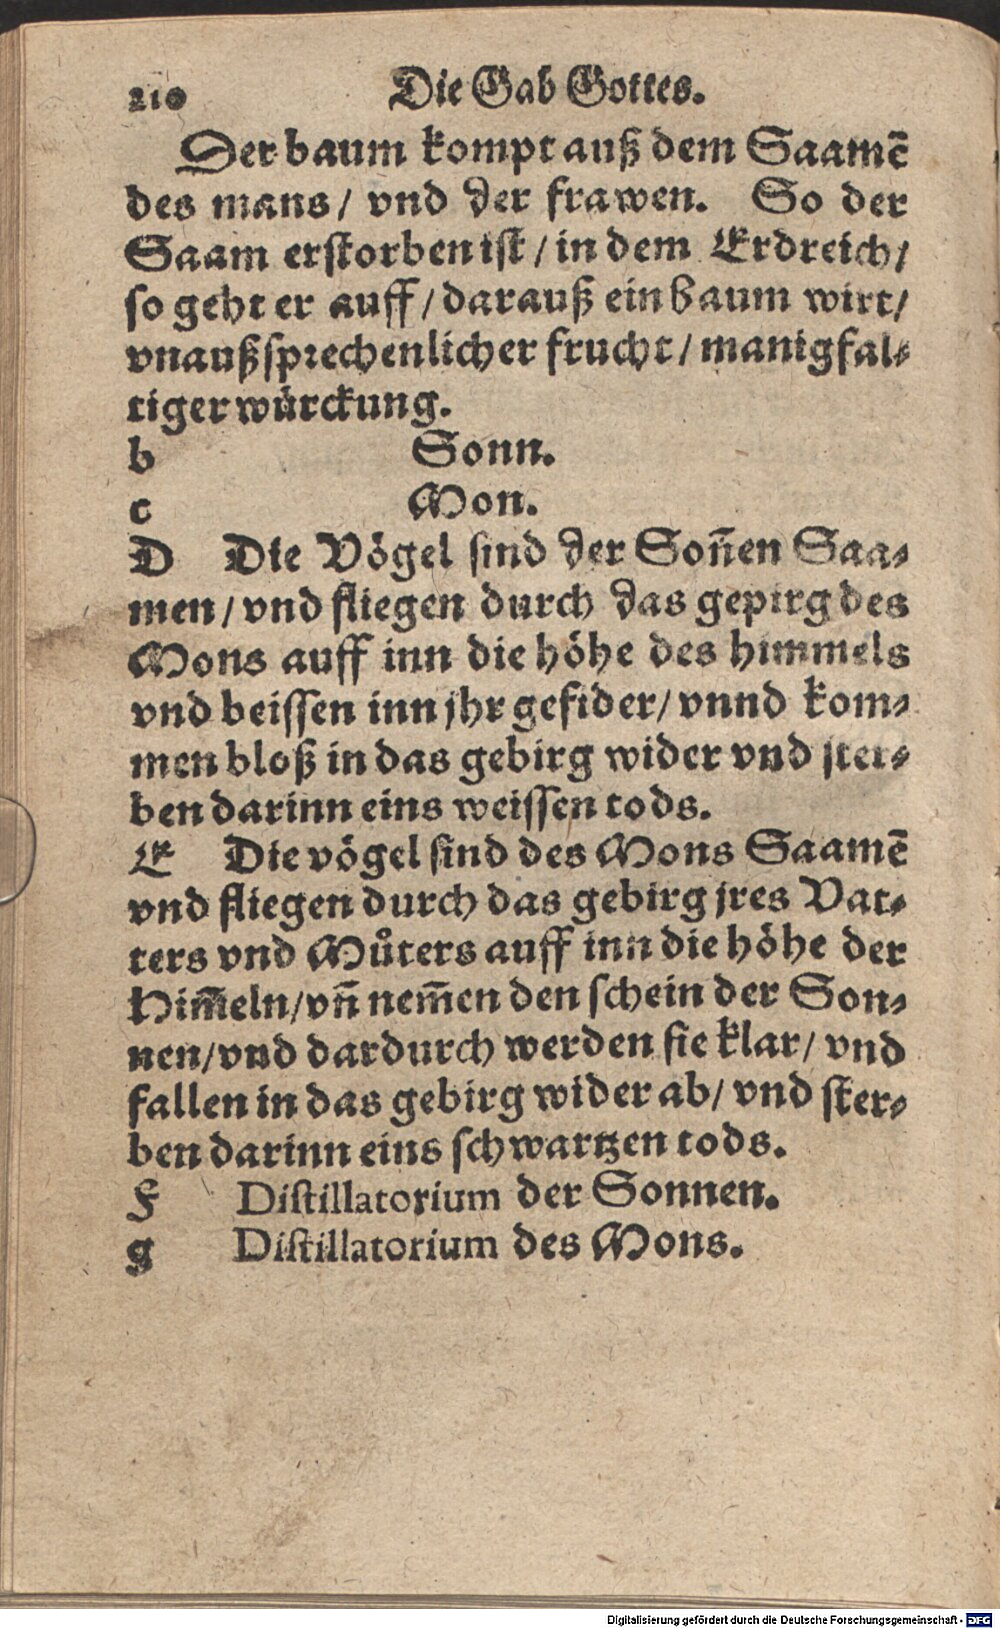 210 Die Gab Gottes.
Der baum kompt auß dem Saamē
des mans / vnd der frawen. So der
Saam erstorben ist / in dem Erdreich /
so geht er auff / darauß ein baum wirt /
vnaußsprechenlicher frucht / manigfal⸗
tiger würckung.
b Sonn.
c Mon.
D Die Vögel sind der Soñen Saa⸗
men / vnd fliegen durch das gepirg des
Mons auff inn die höhe des himmels
vnd beissen inn jhr gefider / vnnd kom⸗
men bloß in das gebirg wider vnd ster⸗
ben darinn eins weissen tods.
E Die vögel sind des Mons Saamē
vnd fliegen durch das gebirg jres Vat⸗
ters vnd Můters auff inn die höhe der
Him̃eln / vñ nem̃en den schein der Son⸗
nen / vnd dardurch werden sie klar / vnd
fallen in das gebirg wider ab / vnd ster⸗
ben darinn eins schwartzen tods.
F Distillatorium der Sonnen.
g Distillatorium des Mons.
Digitalisierung gefördert durch die Deutsche Forschungsgemeinschaft - DFG